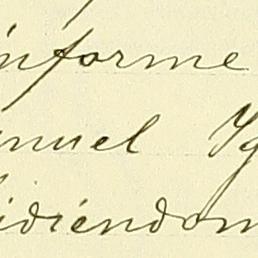 informe
anuel Yg
idiéndom